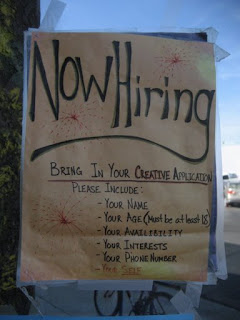 Now Hiring
Bring In Your Creative Application
Please Include:
- Your Name
- Your Age (Must be at least 18)
- Your Availibility
- Your Interests
- Your Phone Number
- Your Self